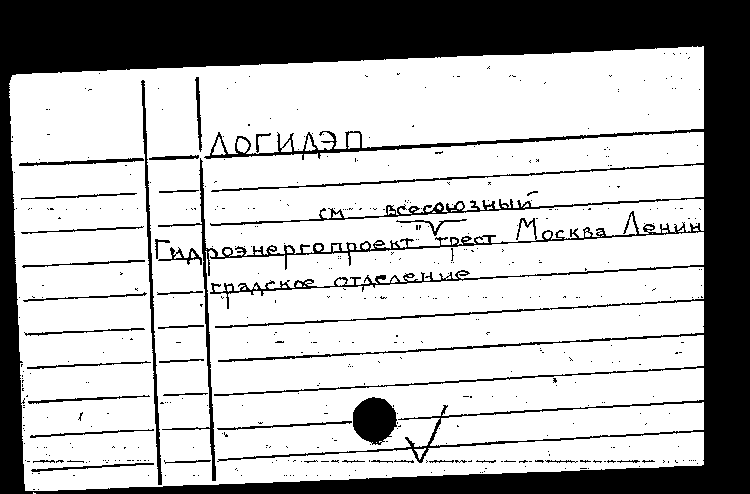 ЛОГИДЭП
см всесоюзный
Гидроэнергопроект" трест. Москва Ленин
градское отделение